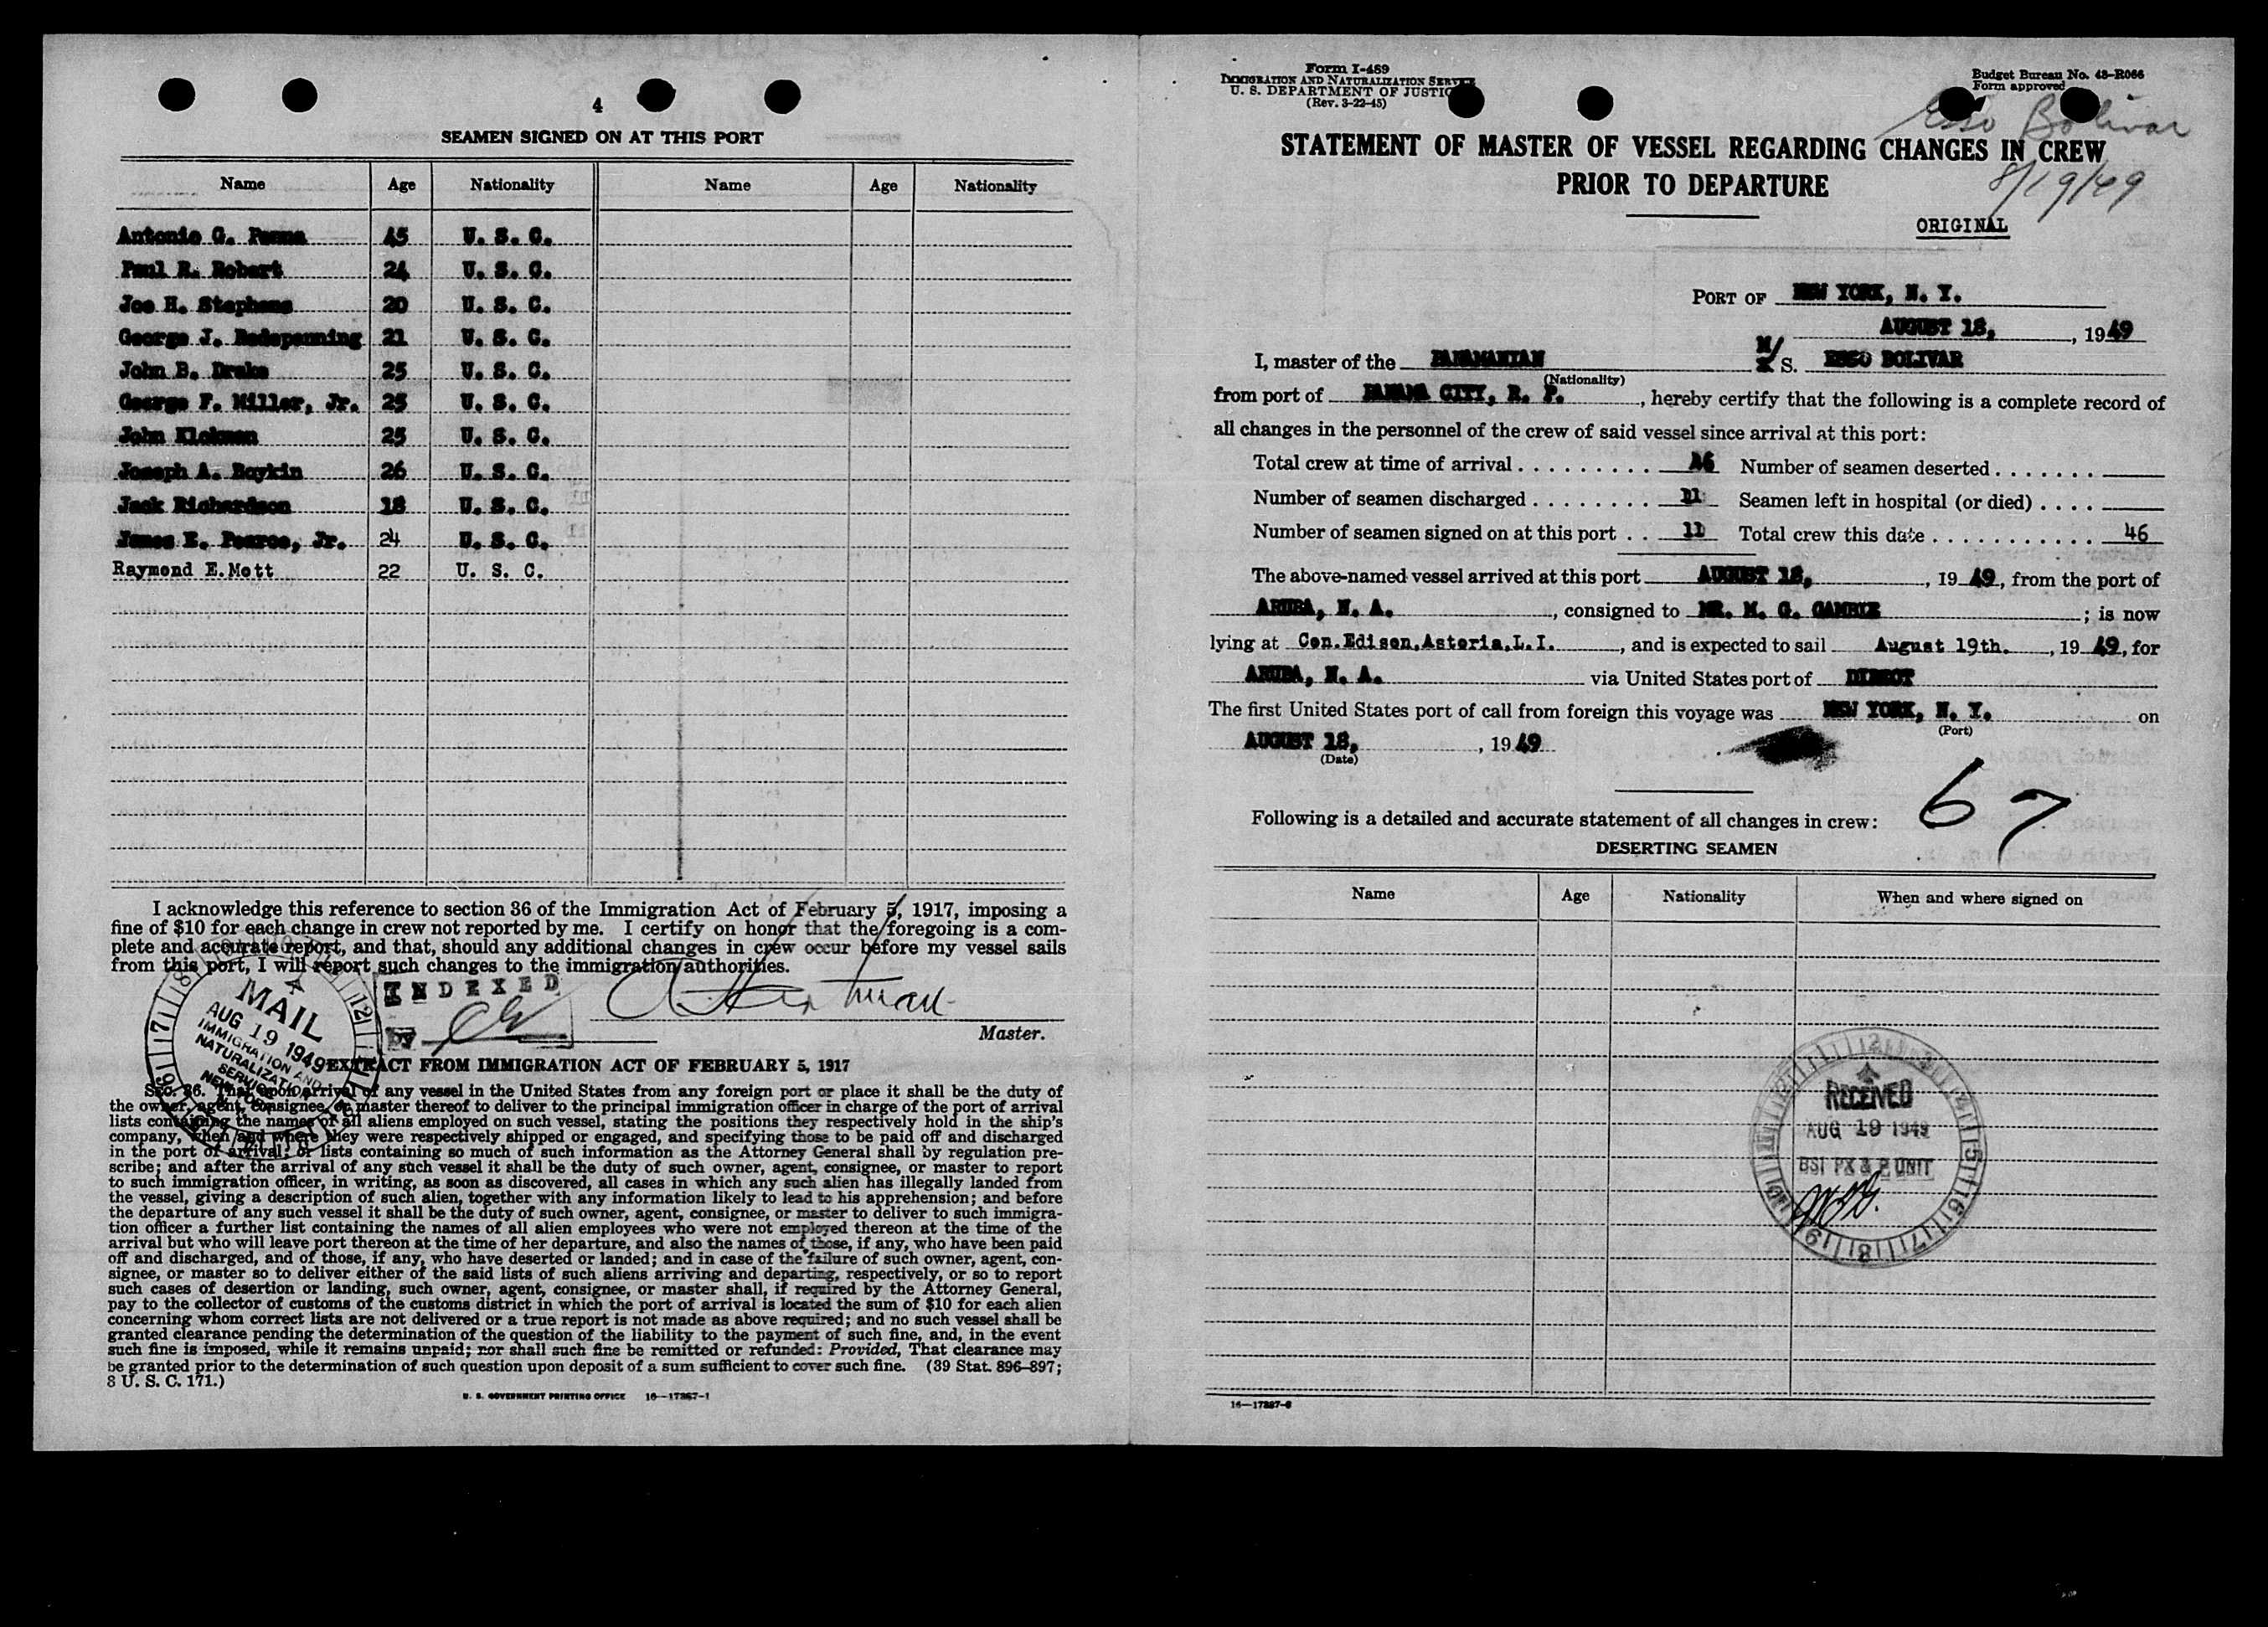 4
SEAMEN SIGNED ON AT THIS PORT
Name Age Nationality Name Age Nationality
Antonio G. 45 U. S. C.
Paul R. Robert 24 U. S. C.
Joe H. Stephens 20 U. S. C.
George J. Redepenning 21 U. S. C.
John B. Drake 25 U. S. C.
George F. Miller, Jr. 25 U. S. C.
John 25 U. S. C.
Joseph A. Boykin 26 U. S. C.
Jack Richardson 18 U. S. C.
James E. Pearce, Jr. 24 U. S. C.
Raymond E.Mott 22 U. S. C.
I acknowledge this reference to section 36 of the Immigration Act of February 5, 1917, imposing a
fine of $10 for each change in crew not reported by me. I certify on honor that the foregoing is a com-
plete and accurate report, and that, should any additional changes in crew occur before my vessel sails
from this port, I will report such changes to the immigration authorities.
INDEXED
by
Master.
MAIL
AUG 19 1949
IMMIGRATION AND
NATURALIZATION
SERVICE
NEW YORK
EXTRACT FROM IMMIGRATION ACT OF FEBRUARY 5, 1917
SEC. 36. That upon arrival of any vessel in the United States from any foreign port or place it shall be the duty of
the owner, agent, consignee, or master thereof to deliver to the principal immigration officer in charge of the port of arrival
lists containing the names of all aliens employed on such vessel, stating the positions they respectively hold in the ship's
company, when and where they were respectively shipped or engaged, and specifying those to be paid off and discharged
in the port of arrival; or lists containing so much of such information as the Attorney General shall by regulation pre-
scribe; and after the arrival of any such vessel it shall be the duty of such owner, agent, consignee, or master to report
to such immigration officer, in writing, as soon as discovered, all cases in which any such alien has illegally landed from
the vessel, giving a description of such alien, together with any information likely to lead to his apprehension; and before
the departure of any such vessel it shall be the duty of such owner, agent, consignee, or master to deliver to such immigra-
tion officer a further list containing the names of all alien employees who were not employed thereon at the time of the
arrival but who will leave port thereon at the time of her departure, and also the names of those, if any, who have been paid
off and discharged, and of those, if any, who have deserted or landed; and in case of the failure of such owner, agent, con-
signee, or master so to deliver either of the said lists of such aliens arriving and departing, respectively, or so to report
such cases of desertion or landing, such owner, agent, consignee, or master shall, if required by the Attorney General,
pay to the collector of customs of the customs district in which the port of arrival is located the sum of $10 for each alien
concerning whom correct lists are not delivered or a true report is not made as above required; and no such vessel shall be
granted clearance pending the determination of the question of the liability to the payment of such fine, and, in the event
such fine is imposed, while it remains unpaid; nor shall such fine be remitted or refunded: Provided, That clearance may
be granted prior to the determination of such question upon deposit of a sum sufficient to cover such fine. (39 Stat. 896-897;
8 U. S. C. 171.)
U. S. GOVERNMENT PRINTING OFFICE 16—17887-1
Form I-489
IMMIGRATION AND NATURALIZATION SERVICE
U. S. DEPARTMENT OF JUSTICE
(Rev. 3-22-45)
Budget Bureau No. 43-R066
Form approved
Esso Bolivar
STATEMENT OF MASTER OF VESSEL REGARDING CHANGES IN CREW
PRIOR TO DEPARTURE
8/19/49
ORIGINAL
PORT OF NEW YORK, N. Y.
AUGUST 18, , 1949
I, master of the PANAMANIAN M/S. ESSO BOLIVAR
(Nationality)
from port of PANAMA CITY, R. P. , hereby certify that the following is a complete record of
all changes in the personnel of the crew of said vessel since arrival at this port:
Total crew at time of arrival . . . . . . . . . . 46 Number of seamen deserted . . . . . . .
Number of seamen discharged . . . . . . . . 11 Seamen left in hospital (or died) . . . .
Number of seamen signed on at this port . . 11 Total crew this date . . . . . . . . . . . . 46
The above-named vessel arrived at this port AUGUST 18, , 1949, from the port of
ARUBA, N. A. , consigned to MR. M. G. GAMBLE ; is now
lying at Con.Edison,Astoria,L.I. , and is expected to sail August 19th. , 1949, for
ARUBA, N. A. via United States port of DIRECT
The first United States port of call from foreign this voyage was NEW YORK, N. Y. on
(Port)
AUGUST 18, , 1949
(Date)
67
Following is a detailed and accurate statement of all changes in crew:
DESERTING SEAMEN
Name Age Nationality When and where signed on
RECEIVED
AUG 19 1949
BSI PX & P UNIT